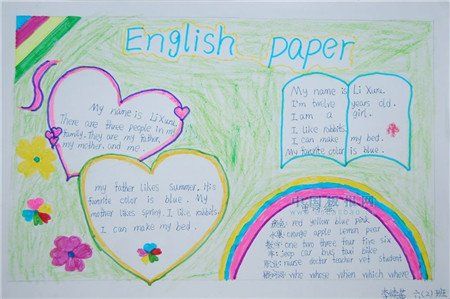 English paper
My name is Li Xuru.
There are three people in my
family. They are my father,
my mother, and me.
my father likes Summer. His
favorite color is blue. My
mother likes spring. I like rabbits.
I can make my bed.
My name is Li Xuru.
I'm twelve years old.
I am a girl.
I like rabbits.
I can make my bed.
My favorite color is blue.
red yellow blue pink
水果: orange apple lemon pear
数字: one two three four five six
车: jeep car bus taxi bike
职业: nurse doctor teacher vet student
who whose when which where
六(2)班